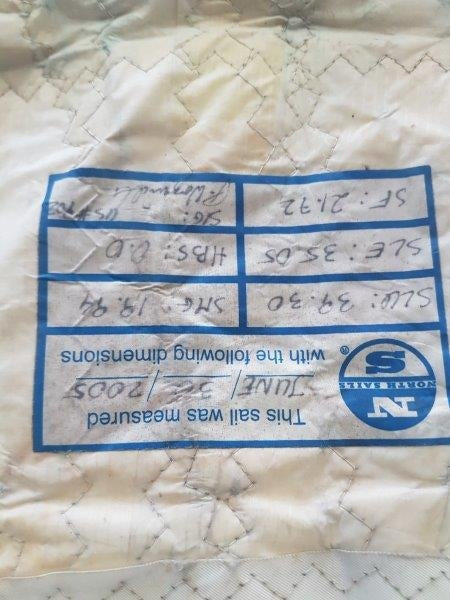 N
NORTH SAILS
S
®
This sail was measured
JUNE / 30 / 2005
with the following dimensions
SLU: 39.30 SMG: 19.94
SLE: 35.05 HBS: 0.0
SF: 21.72 SIG: